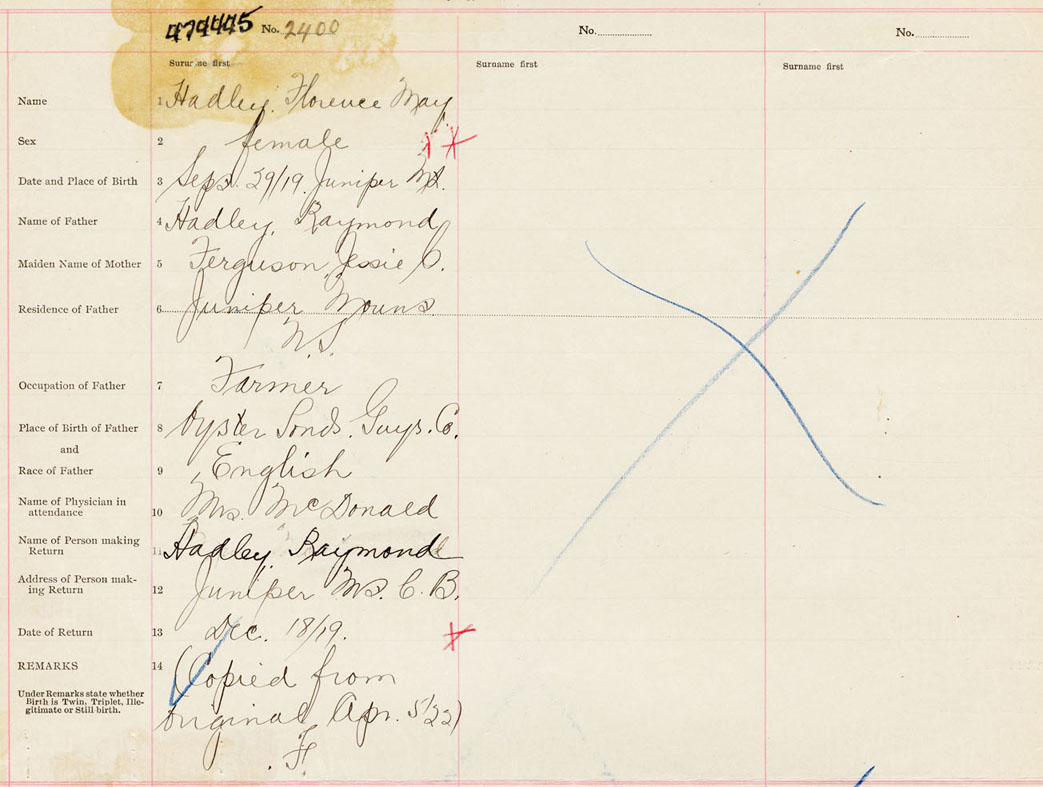 474445 No. 2400 No. No.
Surname first Surname first Surname first
Name 1 Hadley, Florence May
Sex 2 female
Date and Place of Birth 3 Sept. 29/19. Juniper Mt.
Name of Father 4 Hadley, Raymond
Maiden Name of Mother 5 Ferguson, Jessie C.
Residence of Father 6 Juniper Mouns.
N.S.
Occupation of Father 7 Farmer
Place of Birth of Father 8 Oyster Ponds. Guys. Co.
and
Race of Father 9 English
Name of Physician in
attendance 10 Mrs. McDonald
Name of Person making
Return 11 Hadley, Raymond
Address of Person mak-
ing Return 12 Juniper Ms. C. B.
Date of Return 13 Dec. 18/19.
REMARKS 14 (Copied from
Under Remarks state whether
Birth is Twin, Triplet, Ille-
gitimate or Still-birth.
original, Apr. 5/22)
F